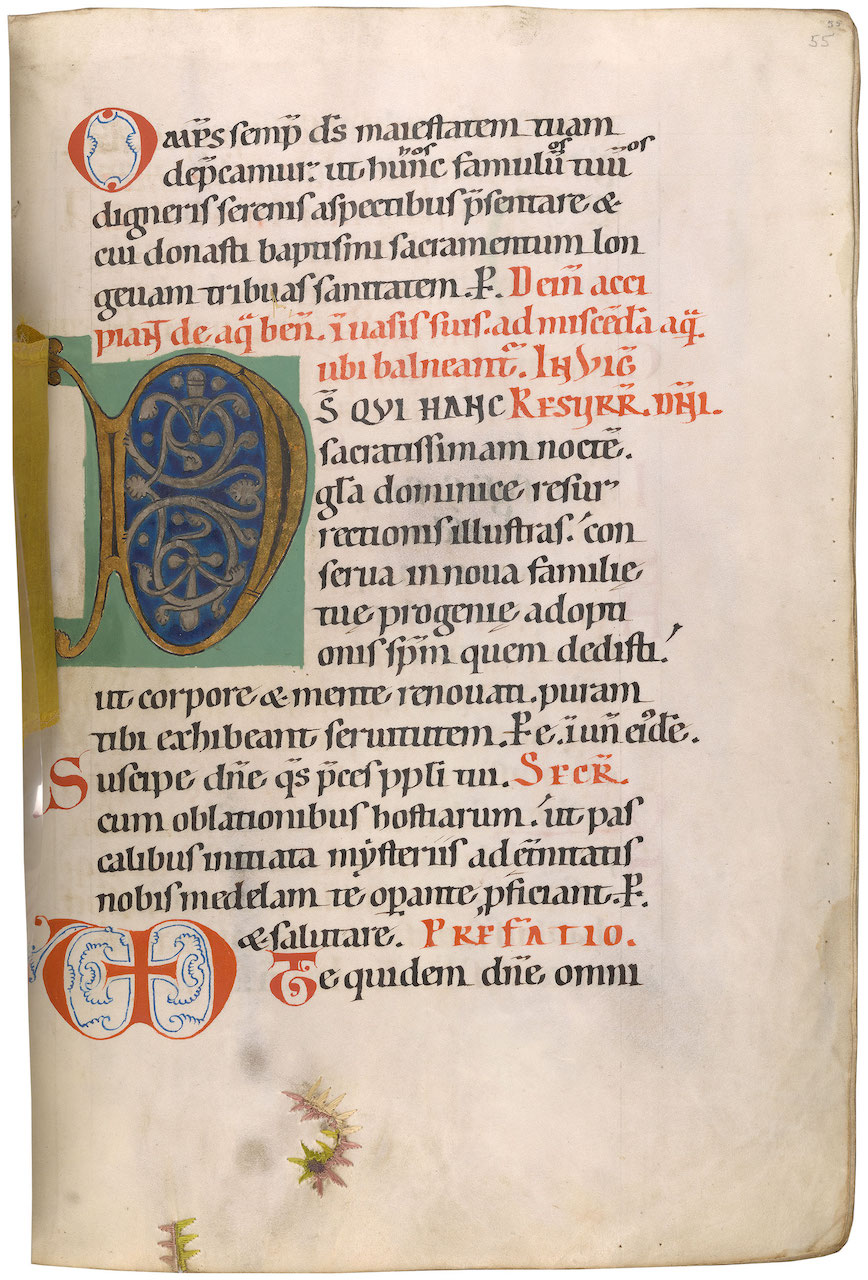 55
55
Om̅p̅s semp̅ d̅s maiestatem tuam
dep̅camur: ut hu̅nc hos famulu̅ os tuu̅ os
digneris serenis aspectibus p̅sentare &
cui donasti baptismi sacramentum lon
geuam tribuas sanitatem. P̅. Dein̅ acci
piant de aq̅ ben̅. i̅ uasis suis. ad misce̅da̅ aq̅.
ubi balneant. In Vig̅
D S̅ QUI HANC Resurr̅. DN̅I.
sacratissimam nocte̅.
gl̅a dominice resur
rectionis illustras. con
serua in noua familie
tuę progenię adopti
onis sp̅m quem dedisti.
ut corpore & mente renouati. puram
tibi exhibeant seruitutem. P̅ e. i̅ un̅ ei'de̅.
Suscipe dn̅e q̅s p̅ces ppl̅i tui. Secr̅.
cum oblationibus hostiarum. ut pas
calibus initiata mysteriis ad et̅nitatis
nobis medelam te op̅ante p̅ficiant. P̅.
& salutare. Prefatio.
Te quidem dn̅e omni